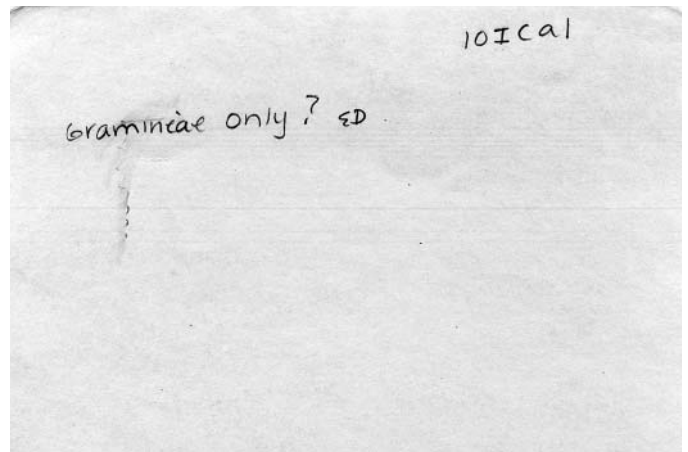 10ICal
Gramineae only? ED